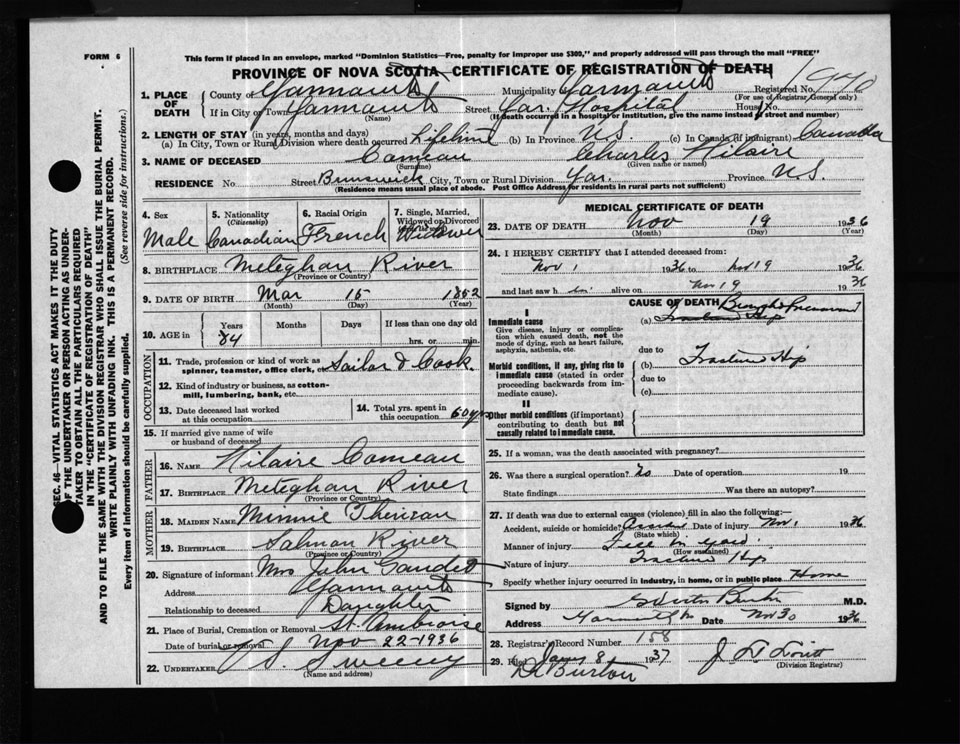 FORM 6
This form if placed in an envelope, marked "Dominion Statistics—Free, penalty for improper use $300," and properly addressed will pass through the mail "FREE"
PROVINCE OF NOVA SCOTIA, CERTIFICATE OF REGISTRATION OF DEATH
1. PLACE OF DEATH
County of Yarmouth Municipality Yarmouth Registered No.
(For use of Registrar General only)
If in City or Town Yarmouth Street Yar. Hospital House No.
(Name) (If death occurred in a hospital or institution, give the name instead of street and number)
2. LENGTH OF STAY (in years, months and days)
(a) In City, Town or Rural Division where death occurred Lifetime (b) In Province N.S. (c) In Canada (if immigrant) Canada
3. NAME OF DECEASED Comeau Charles Hilaire
(Surname) (Given name or names)
RESIDENCE No Street Brunswick City, Town or Rural Division Yar. Province N.S.
(Residence means usual place of abode. Post Office Address for residents in rural parts not sufficient)
4. Sex
Male
5. Nationality
(Citizenship)
Canadian
6. Racial Origin
French
7. Single, Married, Widowed or Divorced
Widower
8. BIRTHPLACE Meteghan River
(Province or Country)
9. DATE OF BIRTH Mar 15 1852
(Month) (Day) (Year)
10. AGE in Years Months Days If less than one day old
84 hrs. or min.
OCCUPATION
11. Trade, profession or kind of work as spinner, teamster, office clerk, etc Sailor & Cook.
12. Kind of industry or business, as cotton-mill, lumbering, bank, etc.
13. Date deceased last worked at this occupation
14. Total yrs. spent in this occupation 60 yrs
15. If married give name of wife or husband of deceased
FATHER
16. NAME Hilaire Comeau
17. BIRTHPLACE Meteghan River
(Province or Country)
MOTHER
18. MAIDEN NAME Minnie
19. BIRTHPLACE Salmon River
(Province or Country)
20. Signature of informant Mrs John Gaudet
Address Yarmouth
Relationship to deceased Daughter
21. Place of Burial, Cremation or Removal St. Ambroise
Date of burial or removal Nov 22-1936
22. UNDERTAKER Sweeny
(Name and address)
MEDICAL CERTIFICATE OF DEATH
23. DATE OF DEATH Nov 19 1936
(Month) (Day) (Year)
24. I HEREBY CERTIFY that I attended deceased from:
Nov 1 1936 to Nov 19 1936
and last saw him alive on Nov 19 1936
CAUSE OF DEATH
I
Immediate cause
Give disease, injury or complication which caused death, not the mode of dying, such as heart failure, asphyxia, asthenia, etc.
(a) Fracture Hip
Morbid conditions, if any, giving rise to immediate cause (stated in order proceeding backwards from immediate cause).
due to
(b) Fracture Hip
due to
(c)
II
Other morbid conditions (if important) contributing to death but not causally related to immediate cause.
25. If a woman, was the death associated with pregnancy?
26. Was there a surgical operation? no Date of operation 19
State findings Was there an autopsy?
27. If death was due to external causes (violence) fill in also the following:—
Accident, suicide or homicide? Accident Date of injury Nov 1 1936
(State which)
Manner of injury Fell in yard
(How sustained)
Nature of injury Fracture Hip
Specify whether injury occurred in industry, in home, or in public place Home
Signed by Burton M.D.
Address Yarmouth Date Nov 30 1936
28. Registrar's Record Number 158
29. Filed Jany 8 1937
(Division Registrar)
Dr Burton
SEC. 46—VITAL STATISTICS ACT MAKES IT THE DUTY
OF THE UNDERTAKER OR PERSON ACTING AS UNDER-
TAKER TO OBTAIN ALL THE PARTICULARS REQUIRED
IN THE "CERTIFICATE OF REGISTRATION OF DEATH"
AND TO FILE THE SAME WITH THE DIVISION REGISTRAR WHO SHALL ISSUE THE BURIAL PERMIT.
WRITE PLAINLY WITH UNFADING INK. THIS IS A PERMANENT RECORD.
Every item of information should be carefully supplied. (See reverse side for instructions.)